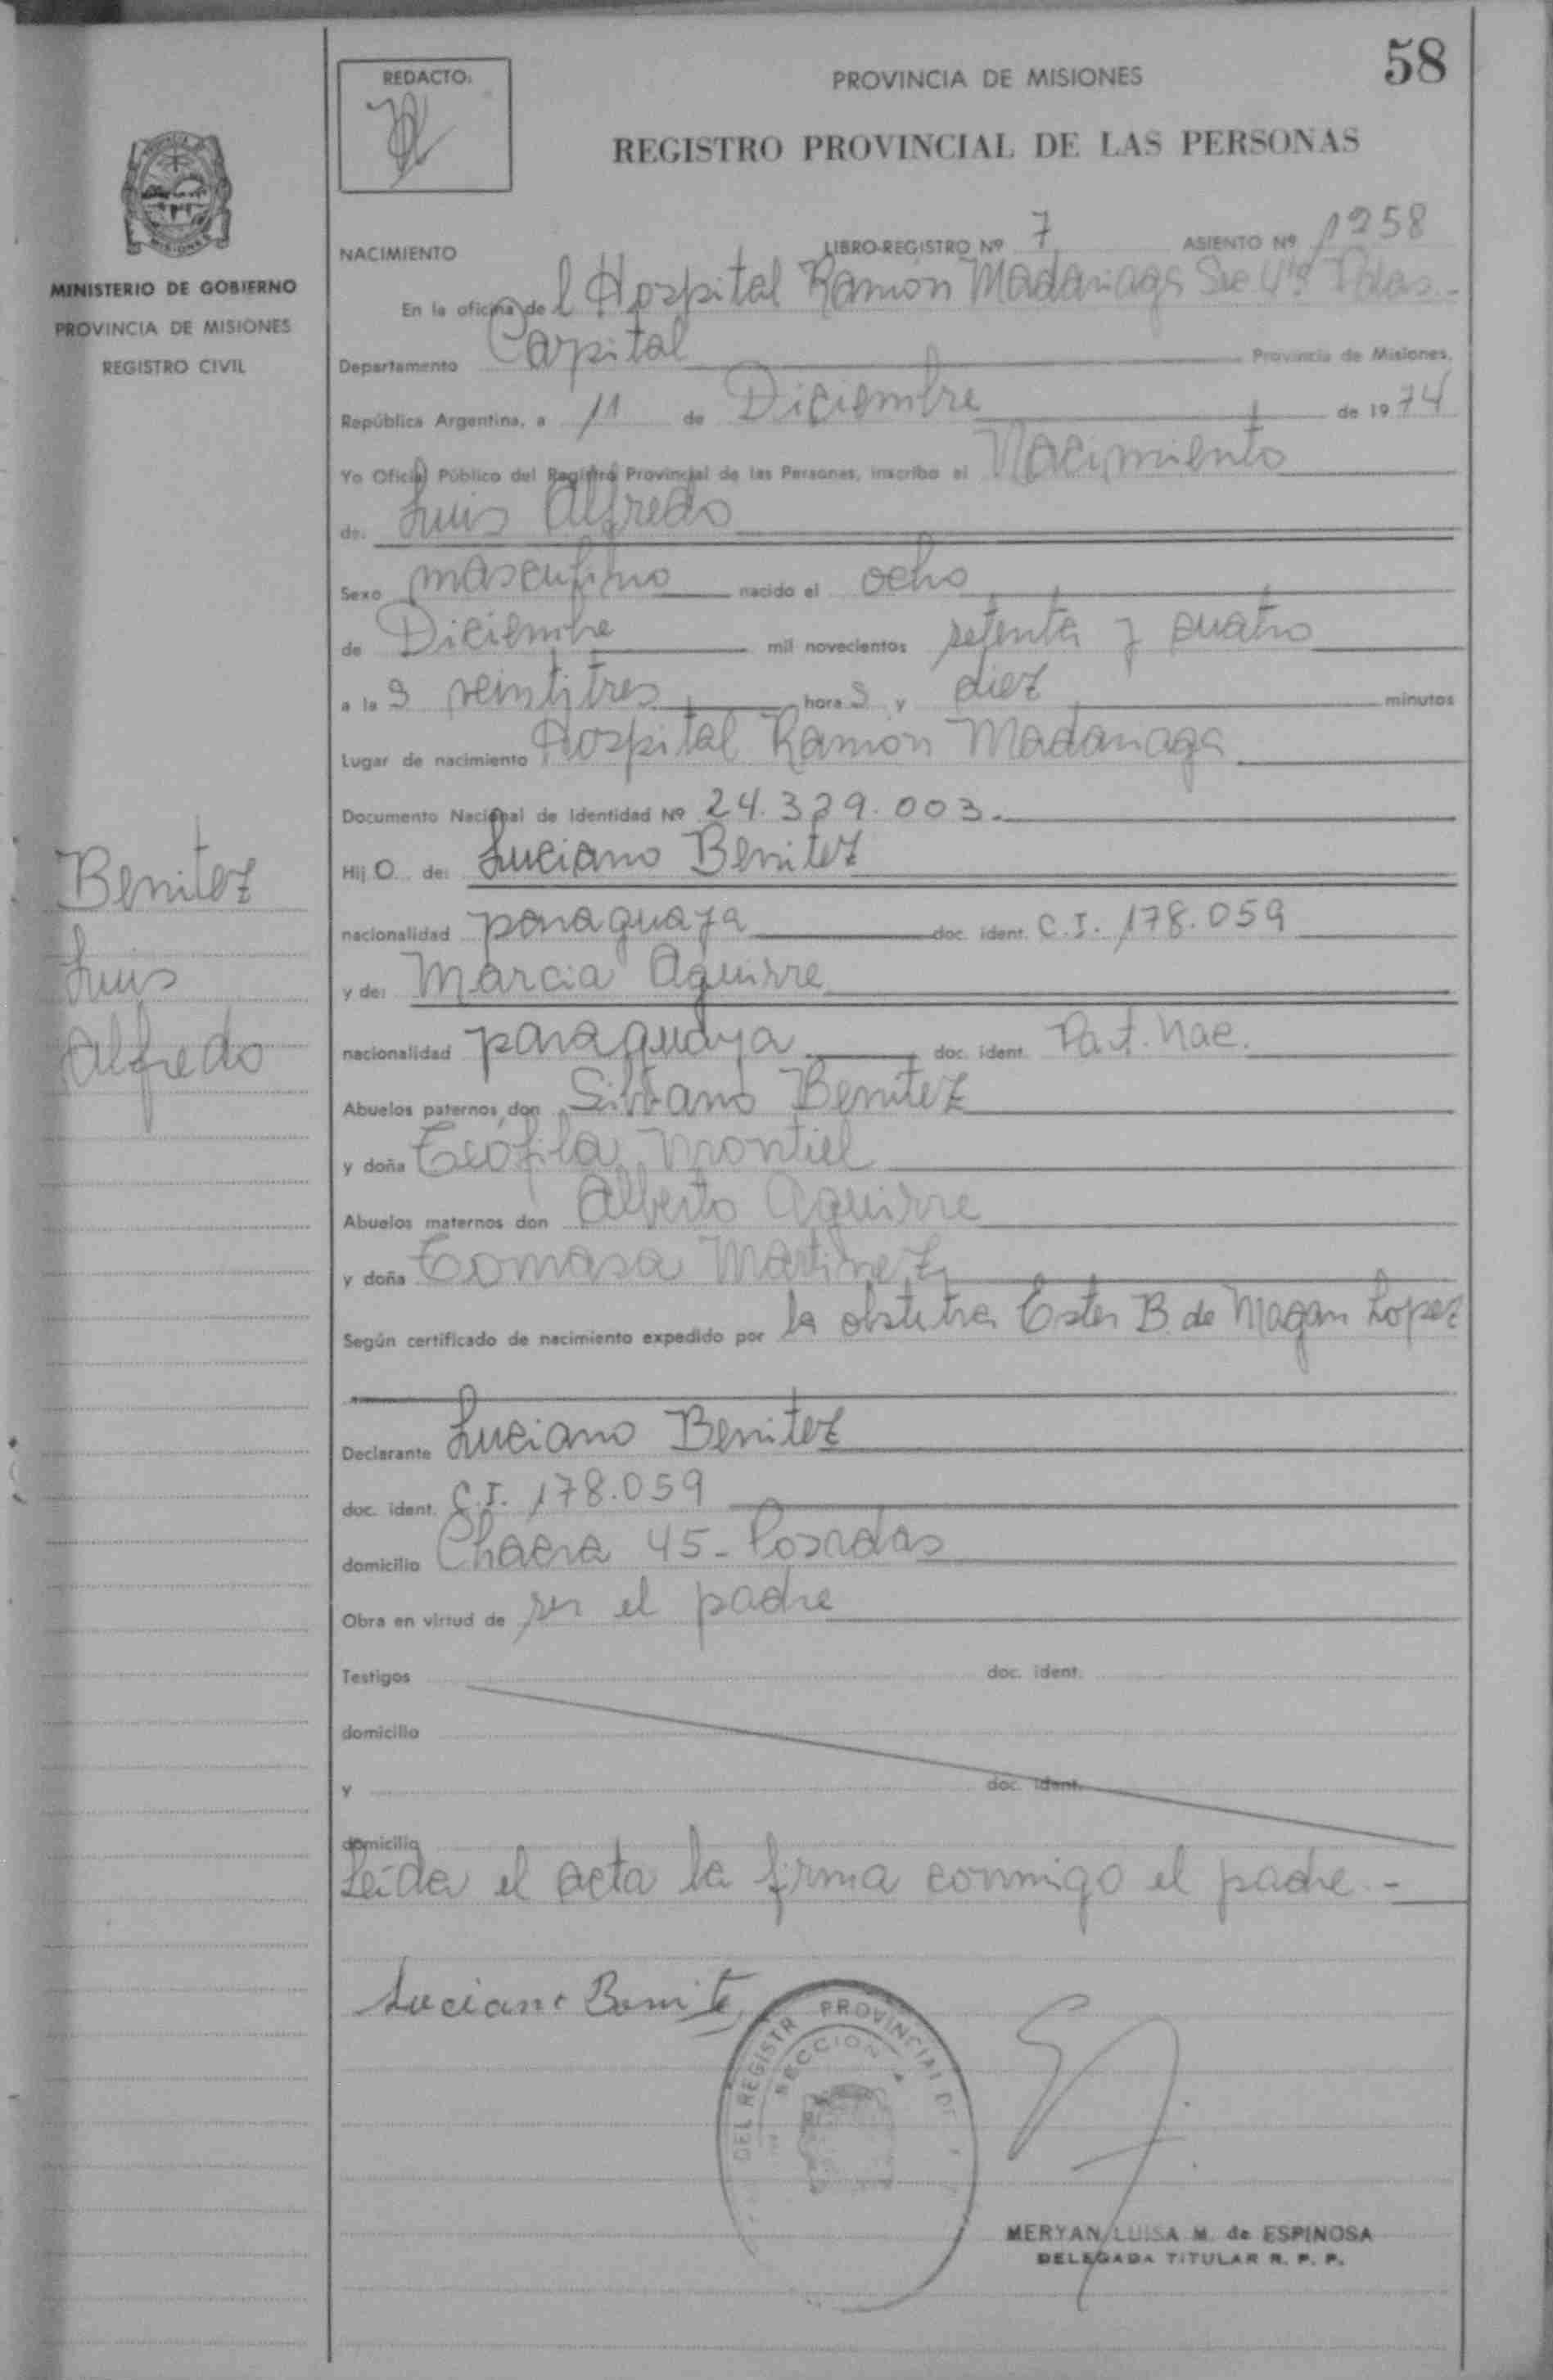 58
REDACTO:
PROVINCIA DE MISIONES
REGISTRO PROVINCIAL DE LAS PERSONAS
MINISTERIO DE GOBIERNO
PROVINCIA DE MISIONES
REGISTRO CIVIL
NACIMIENTO LIBRO-REGISTRO Nº 7 ASIENTO Nº 1258
En la oficina del Hospital Ramón Madariaga Sec 4ta Pdas.-
Departamento Capital Provincia de Misiones,
República Argentina, a 11 de Diciembre de 1974
Yo Oficial Público del Registro Provincial de las Personas, inscribo el Nacimiento
de: Luis Alfredo
Sexo masculino nacido el ocho
de Diciembre mil novecientos setenta y cuatro
a la s veintitres hora s y diez minutos
Lugar de nacimiento Hospital Ramón Madariaga
Documento Nacional de Identidad Nº 24.329.003.-
Hij o de: Luciano Benitez
nacionalidad paraguaya doc. ident. C.I. 178.059
y de: Marcia Aguirre
nacionalidad paraguaya doc. ident. Part. Nac.
Abuelos paternos don Benitez
y doña Teófila Montiel
Abuelos maternos don Alberto Aguirre
y doña Tomasa Martinez
Según certificado de nacimiento expedido por la obstetra Ester B. de Magan Lopez
Declarante Luciano Benitez
doc. ident. C.I. 178.059
domicilio Chacra 45- Posadas
Obra en virtud de ser el padre
Testigos doc. ident.
domicilio
y doc. ident.
domicilio
Leida el acta la firma conmigo el padre.-
Benitez
Luis
Alfredo
Luciano Benitez
DEL REGISTR PROVINCIAL DE
SECCION 4
MERYAN LUISA M. de ESPINOSA
DELEGADA TITULAR R. P. P.